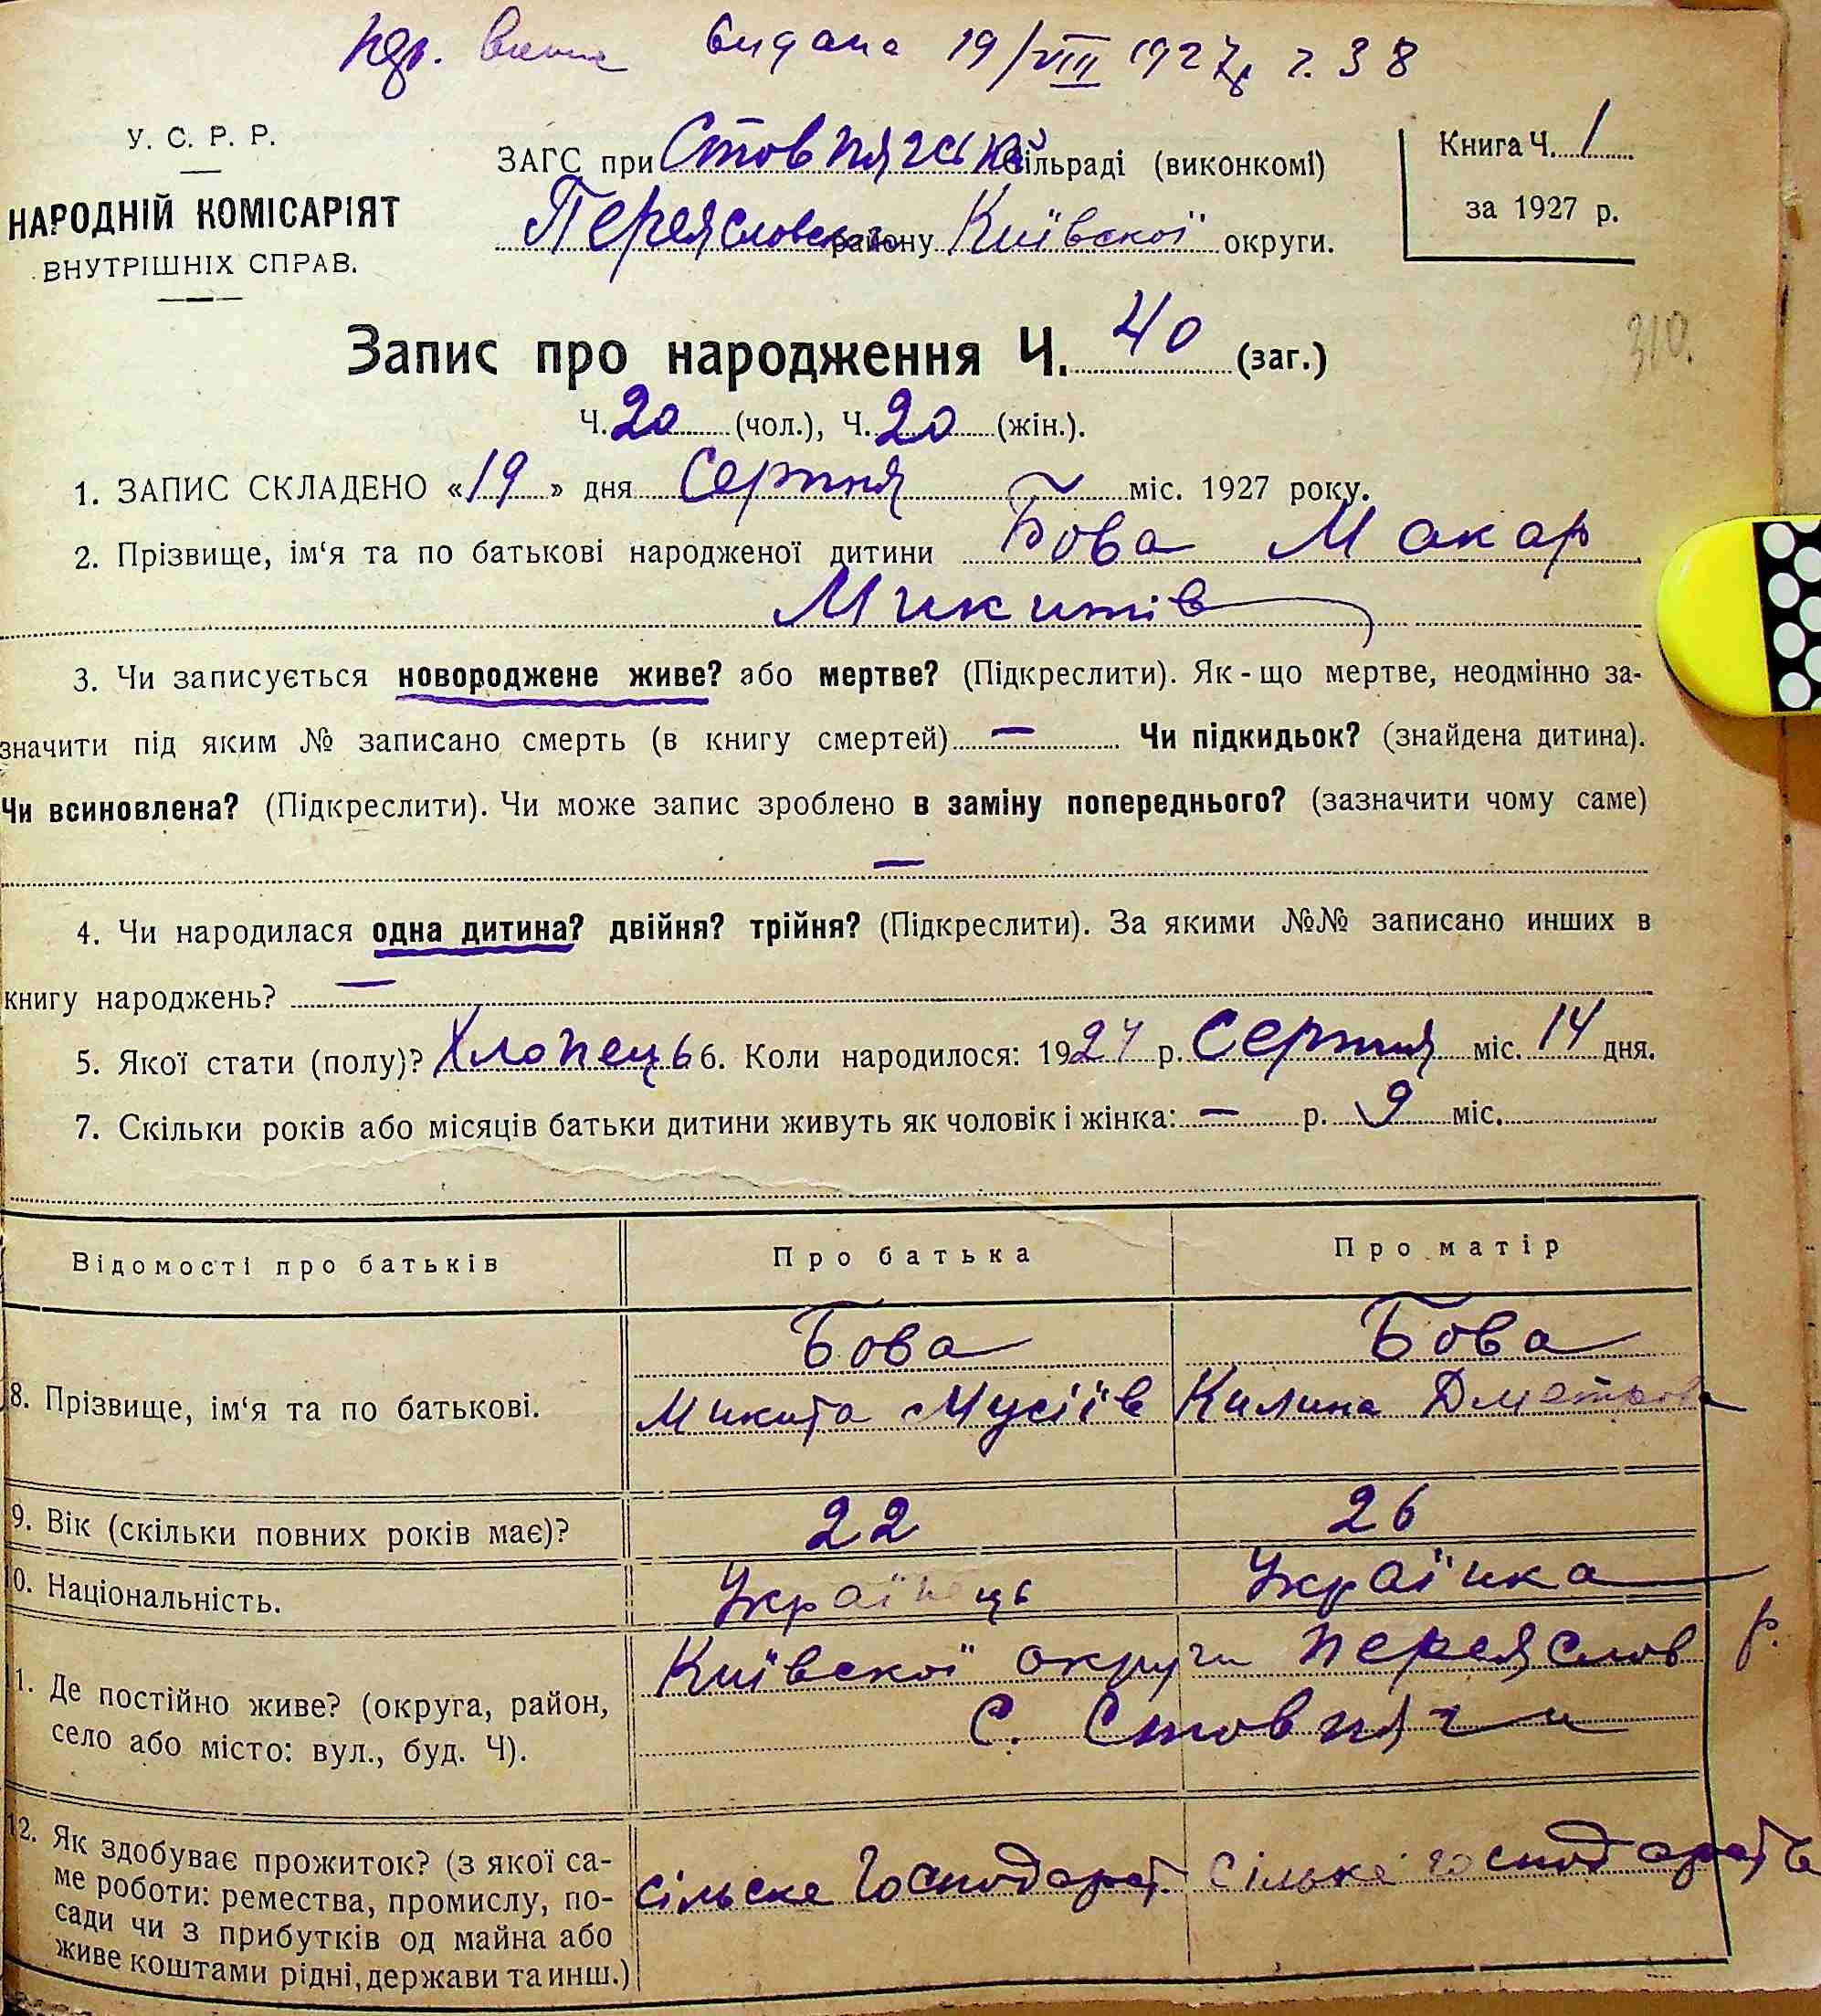 видана 19/VIII 1927 р. ч. 38
У. С. Р. Р.
НАРОДНІЙ КОМІСАРІЯТ
ВНУТРІШНІХ СПРАВ.
ЗАГС при Стовпягській сільраді (виконкомі)
Переясловського району Київської округи.
Книга Ч. 1
за 1927 р.
310.
Запис про народження Ч. 40 (заг.)
Ч. 20 (чол.), Ч. 20 (жін.).
1. ЗАПИС СКЛАДЕНО «19» дня Серпня міс. 1927 року.
2. Прізвище, ім‘я та по батькові народженої дитини Бова Макар
Микитів
3. Чи записується новороджене живе? або мертве? (Підкреслити). Як-що мертве, неодмінно за-
значити під яким № записано смерть (в книгу смертей) — Чи підкидьок? (знайдена дитина).
Чи всиновлена? (Підкреслити). Чи може запис зроблено в заміну попереднього? (зазначити чому саме)
—
4. Чи народилася одна дитина? двійня? трійня? (Підкреслити). За якими №№ записано инших в
книгу народжень? —
5. Якої стати (полу)? Хлопець 6. Коли народилося: 1927 р. Серпня міс. 14 дня.
7. Скільки років або місяців батьки дитини живуть як чоловік і жінка: — р. 9 міс.
Відомості про батьків Про батька Про матір
8. Прізвище, ім‘я та по батькові. Бова Микита Мусіїв Бова Килина Дметрова
9. Вік (скільки повних років має)? 22 26
10. Національність. Українець Українка
11. Де постійно живе? (округа, район, Київскої округи Переяслов р.
село або місто: вул., буд. Ч). с. Стовпяги
12. Як здобуває прожиток? (з якої са-
ме роботи: ремества, промислу, по- сільске господарст. сільке господарств
сади чи з прибутків од майна або
живе коштами рідні, держави та инш.)